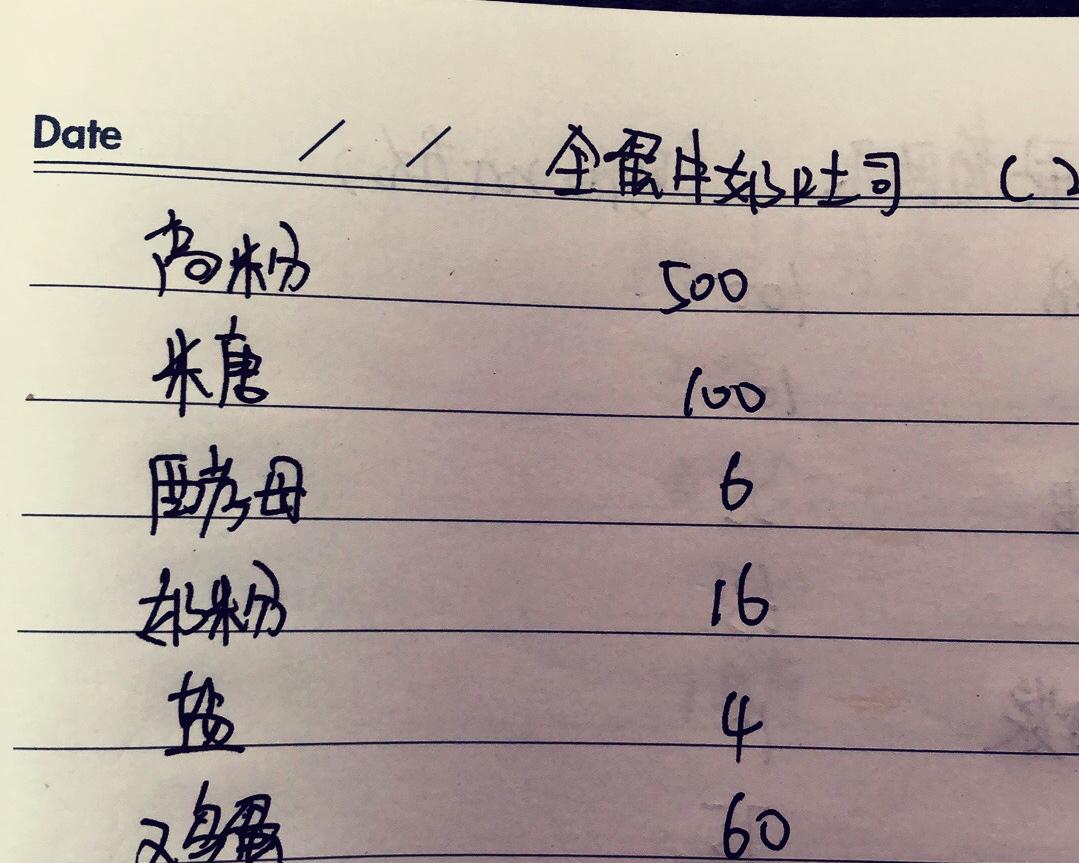 Date / / 全蛋牛奶吐司 ( )
高粉 500
糖 100
酵母 6
奶粉 16
盐 4
鸡蛋 60